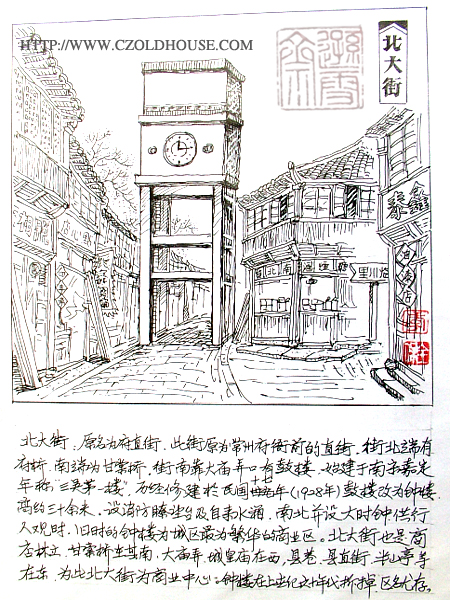 HTTP://WWW.CZOLDHOUSE.COM
北大街
鑫泰
北大街，原名为府直街，此街原为常州府衙前的直街，街北端有
府桥，南端为甘棠桥，街南靠大庙弄口有鼓楼，始建于南宋嘉定
年称"三吴第一楼"。历经修建於民国十七年(1928年)鼓楼改为钟楼
高约三十余米，设消防瞭望台及自来水箱，南北并设大时钟供行
人观时，旧时的钟楼为城区最为繁华的商业区。北大街也是商
店林立，甘棠桥在其南，大庙弄、城皇庙在西，县巷、县直街、半山亭等
在东，为此北大街为商业中心。钟楼在上世纪十年代拆掉区名尤存。